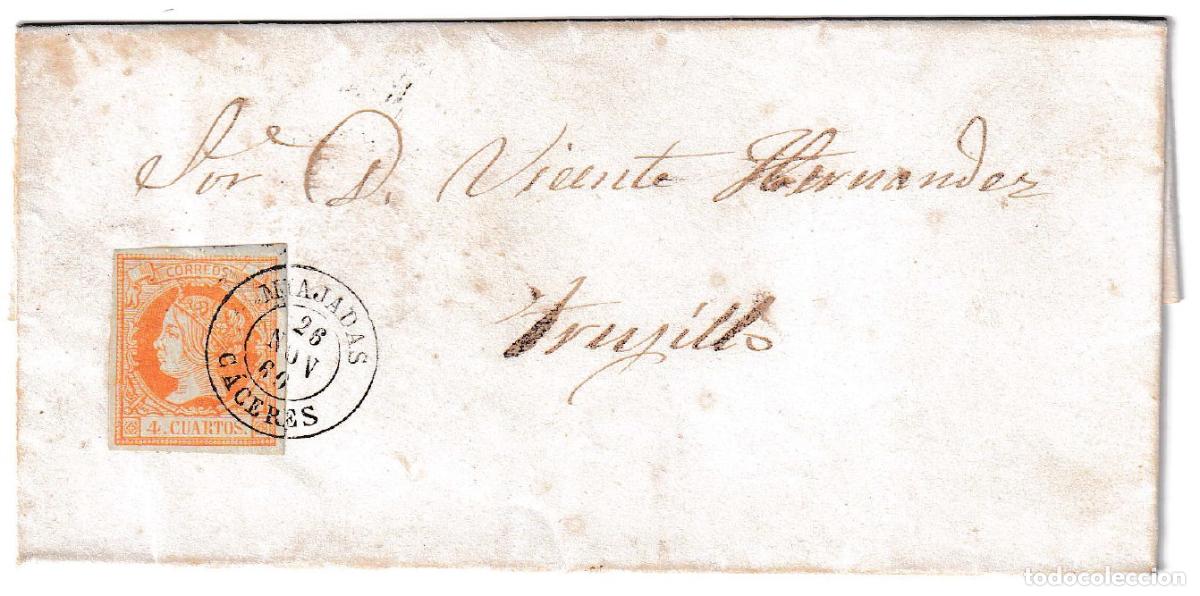 Sor. D. Vicente Hernandez
Trujillo
CORREOS
4. CUARTOS.
MIAJADAS
26
NOV
60
CÁCERES
todocoleccion